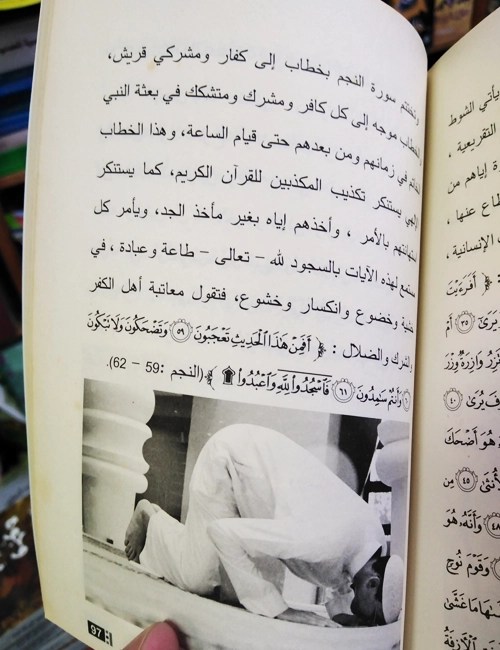 وتختتم سورة النجم بخطاب إلى كفار ومشركي قريش،
والخطاب موجه إلى كل كافر ومشرك ومتشكك في بعثة النبي
في زمانهم ومن بعدهم حتى قيام الساعة، وهذا الخطاب
يستنكر تكذيب المكذبين للقرآن الكريم، كما يستنكر
استهانتهم بالأمر، وأخذهم إياه بغير مأخذ الجد، ويأمر كل
مستمع لهذه الآيات بالسجود لله – تعالى – طاعة وعبادة، في
خشية وخضوع وانكسار وخشوع، فتقول معاتبة أهل الكفر
والشرك والضلال : ﴿ أَفَمِنْ هَٰذَا الْحَدِيثِ تَعْجَبُونَ ﴿٥٩﴾ وَتَضْحَكُونَ وَلَا تَبْكُونَ
وَأَنتُمْ سَامِدُونَ ﴿٦١﴾ فَاسْجُدُوا لِلَّهِ وَاعْبُدُوا ۩ ﴾ (النجم :59 – 62).
97
يأتي الشوط
التقريعية ،
إياهم من
عنها ،
الإنسانية ،
: ﴿ أَفَرَءَيْتَ
يَرَىٰ ﴿٣٥﴾ أَمْ
تَزِرُ وَازِرَةٌ وِزْرَ
يُرَىٰ ﴿٤٠﴾
هُوَ أَضْحَكَ
﴿٤٥﴾ مِن
﴿٤٨﴾ وَأَنَّهُ هُوَ
وَقَوْمَ نُوحٍ
مَا غَشَّىٰ
الْآزِفَةُ